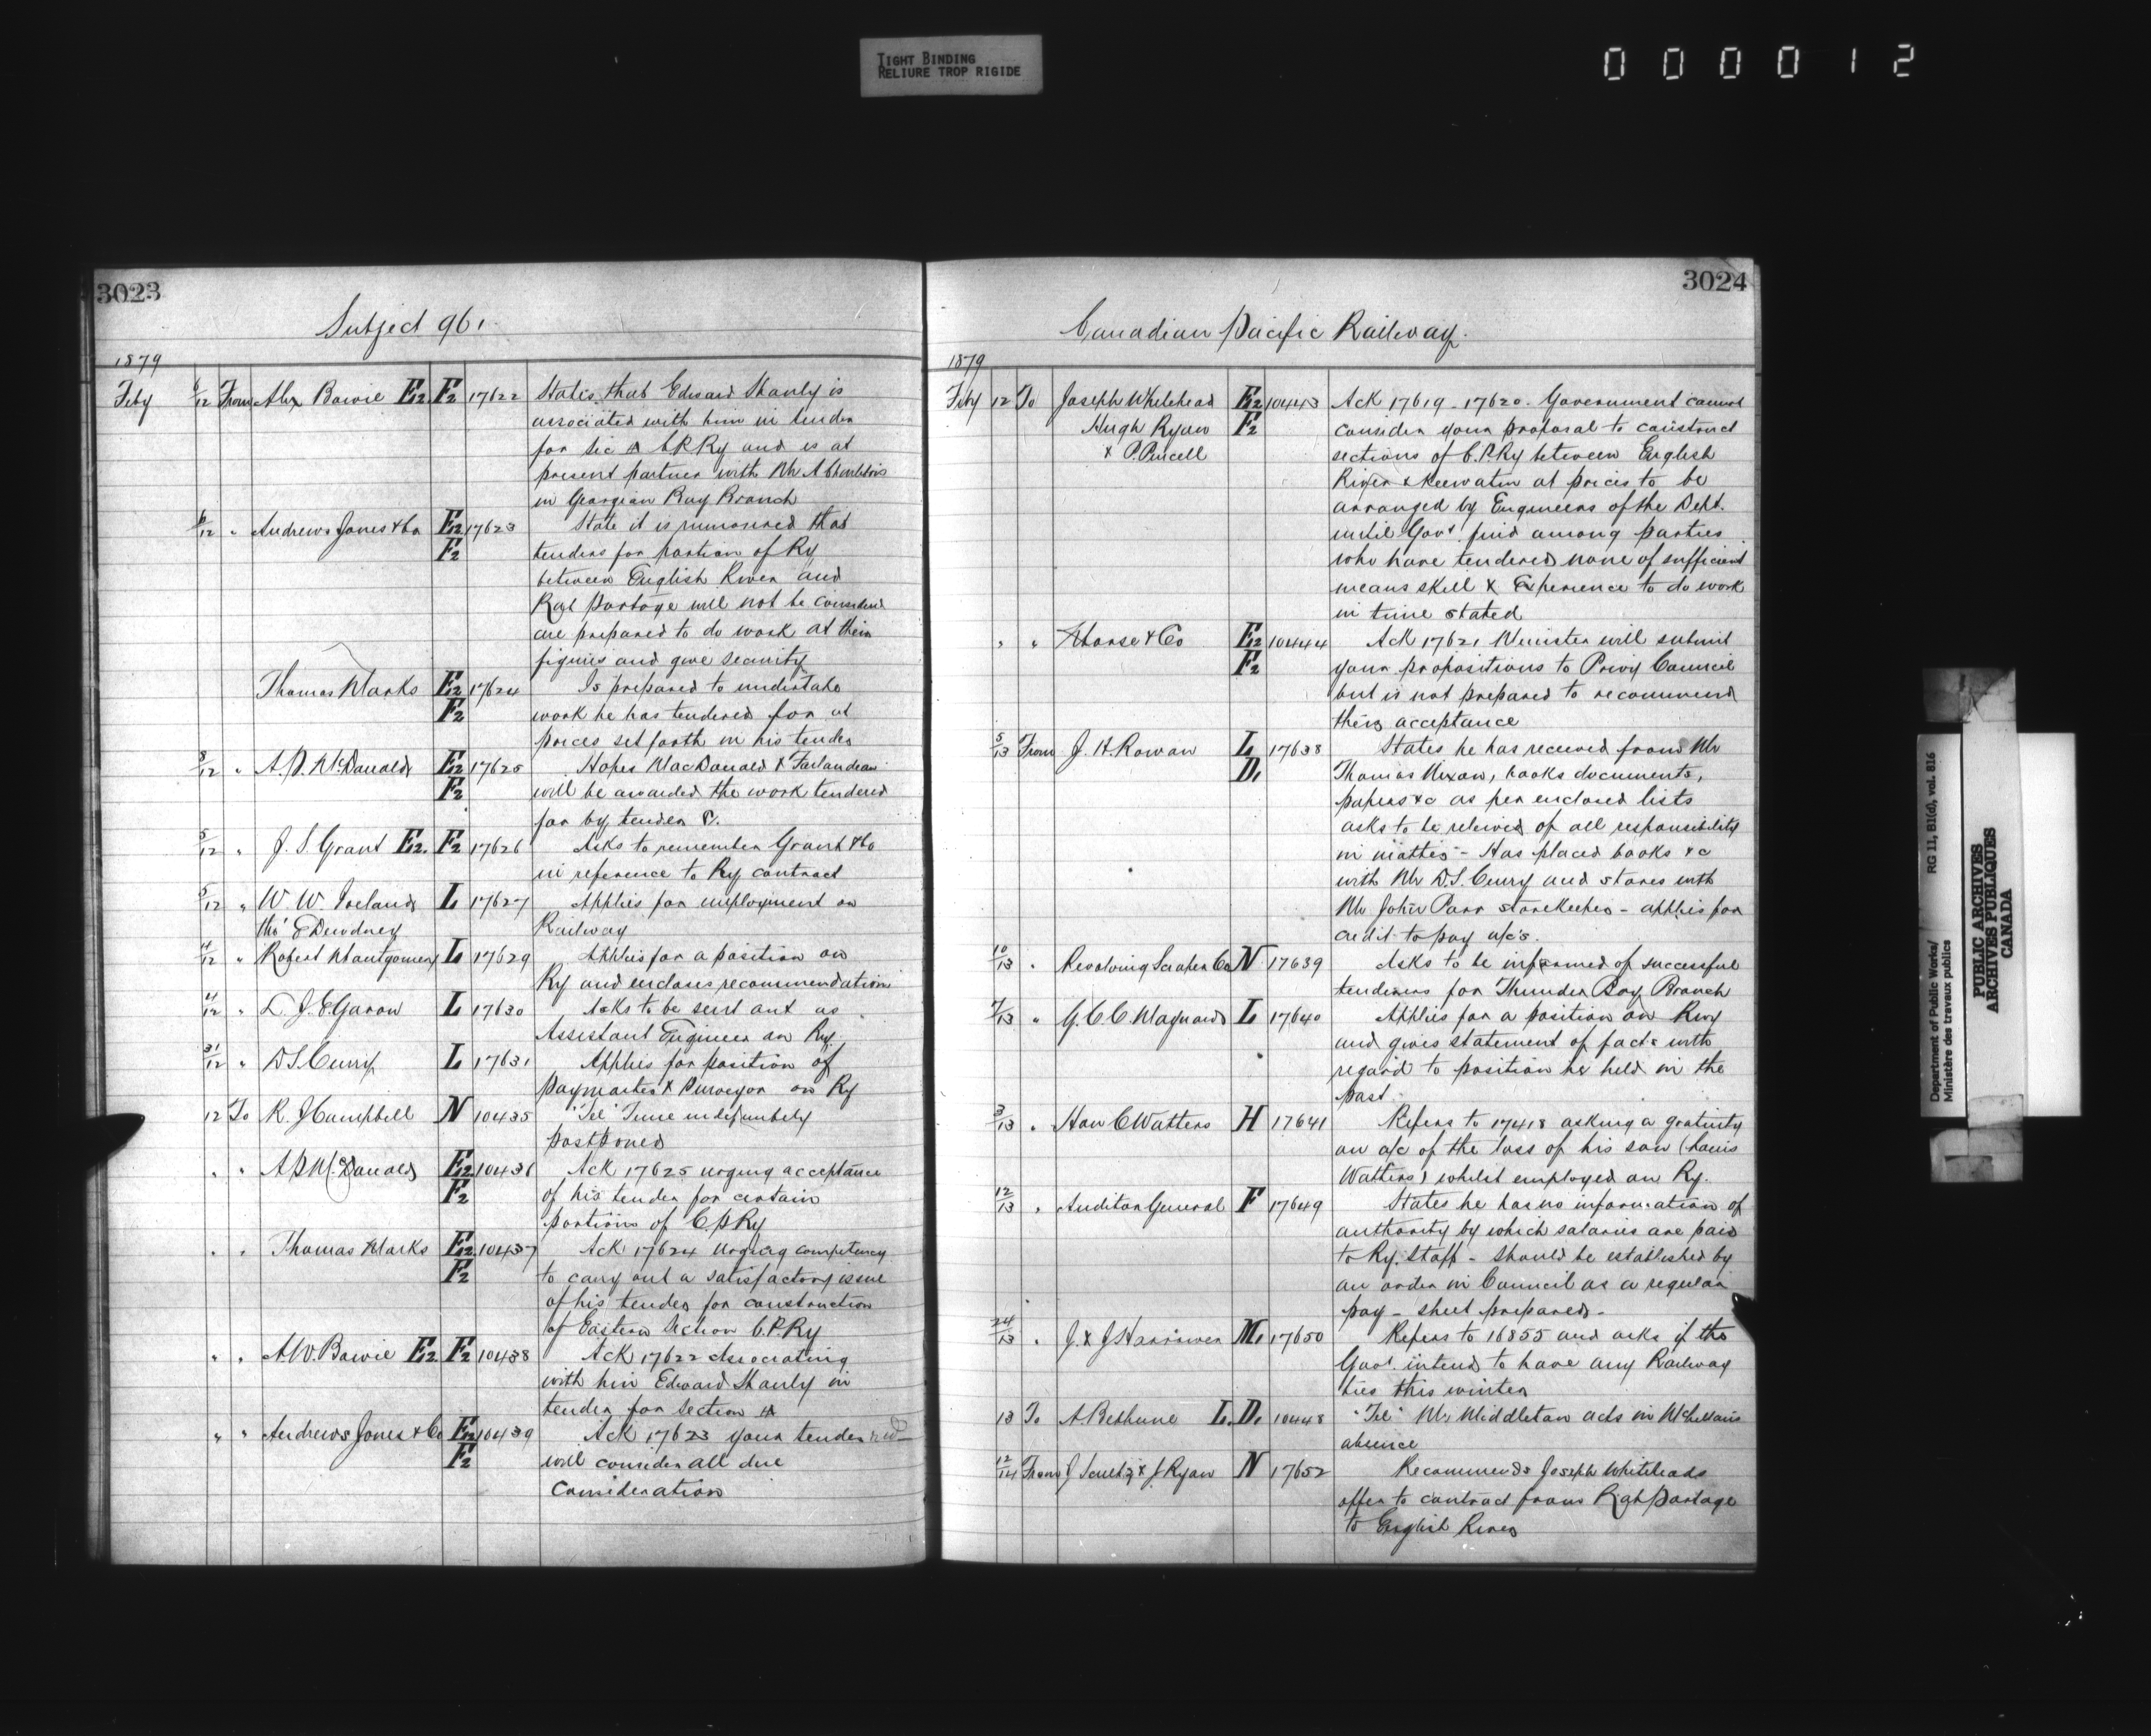 TIGHT BINDING
RELIURE TROP RIGIDE
000012
3023
Subject 96.
1879
Feby 6/12 From Alex Bowie E2. F2 17622 States that Edward Shanly is
associated with him in tender
for Sec A C.P.Ry and is at
present partner with Mr A
in Georgian Bay Branch
6/12 " Andrews Jones & Co E2 17623 State it is rumoured that
F2 tenders for portion of Ry
between English River and
Rat Portage will not be considered
are prepared to do work at their
figures and give security
Thomas Marks E2 17624 Is prepared to undertake
F2 work he has tendered for at
prices set forth in his tender
8/12 " A.P. McDonald E2 17625 Hopes MacDonald &
F2 will be awarded the work tendered
for by tender C.
5/12 " J. S. Grant E2. F2 17626 Asks to remember Grant & Co
in reference to Ry contract
5/12 " W. W. Ireland L 17627 Applies for employment on
tho' E Dewdney Railway
4/12 " Robert Montgomery L 17629 Applies for a position on
Ry and encloses recommendations
4/12 " L. J. E. Garon L 17630 Asks to be sent out as
Assistant Engineer on Ry.
31/12 " D S. Curry L 17631 Applies for position of
paymaster & Purveyor on Ry
12 To R. J Campbell N 10435 "Tel" Time indefinitely
postponed
" " A P McDonald E2 10436 Ack 17625 urging acceptance
F2 of his tender for certain
portions of C.P.Ry
" " Thomas Marks E2 10437 Ack 17624 urging competency
F2 to carry out a satisfactory issue
of his tender for construction
of Eastern Section C.P.Ry
" " A W. Bowie E2. F2 10438 Ack 17622 Associating
with him Edward Shanly in
tender for section A
" " Andrews Jones & Co E2 10439 Ack 17623 your tender
F2 will consider all due
consideration
3024
Canadian Pacific Railway.
1879
Feby 12 To Joseph Whitehead E2 10443 Ack 17619 - 17620. Government cannot
Hugh Ryan F2 consider your proposal to construct
& P. Purcell sections of C.P.Ry between English
River & Keewatin at prices to be
arranged by Engineers of the Dept.
until Govt find among parties
who have tendered none of sufficient
means skill & Experience to do work
in time stated
" " Morse & Co E2 10444 Ack 17621 Minister will submit
F2 your propositions to Privy Council
but is not prepared to recommend
their acceptance
5/13 From J. H. Rowan L 17638 States he has received from Mr
D1 Thomas Nixon, books documents,
papers &c as per enclosed lists
asks to be relieved of all responsibility
in matter - Has placed books &c
with Mr D.S. Curry and stores with
Mr John Parr storekeeper - applies for
credit to pay a/c's.
10/13 " Revolving Scraper Co N 17639 Asks to be informed of successful
tenderers for Thunder Bay Branch
7/13 " G. C. C. Maynard L 17640 Applies for a position on Rwy
and gives statement of facts with
regard to position he held in the
past
3/13 " Hon C Watters H 17641 Refers to 17418 asking a gratuity
on a/c of the loss of his son (Louis
Watters) whilst employed on Ry.
12/13 " Auditor General F 17649 States he has no information of
authority by which salaries are paid
to Ry. Staff - should be established by
an order in Council as a regular
pay - sheet prepared -
24/13 " J. & J Harrower M1 17650 Refers to 16855 and asks if the
Govt. intend to have any Railway
ties this winter
13 To A. Bethune L. D1 10448 "Tel" Mr Middleton acts in McLellan's
absence
12/14 From J Schultz & J. Ryan N 17652 Recommends Joseph Whiteheads
offer to contract from Rat Portage
to English River
Department of Public Works/
Ministère des travaux publics
RG 11, B1(d), vol. 816
PUBLIC ARCHIVES
ARCHIVES PUBLIQUES
CANADA